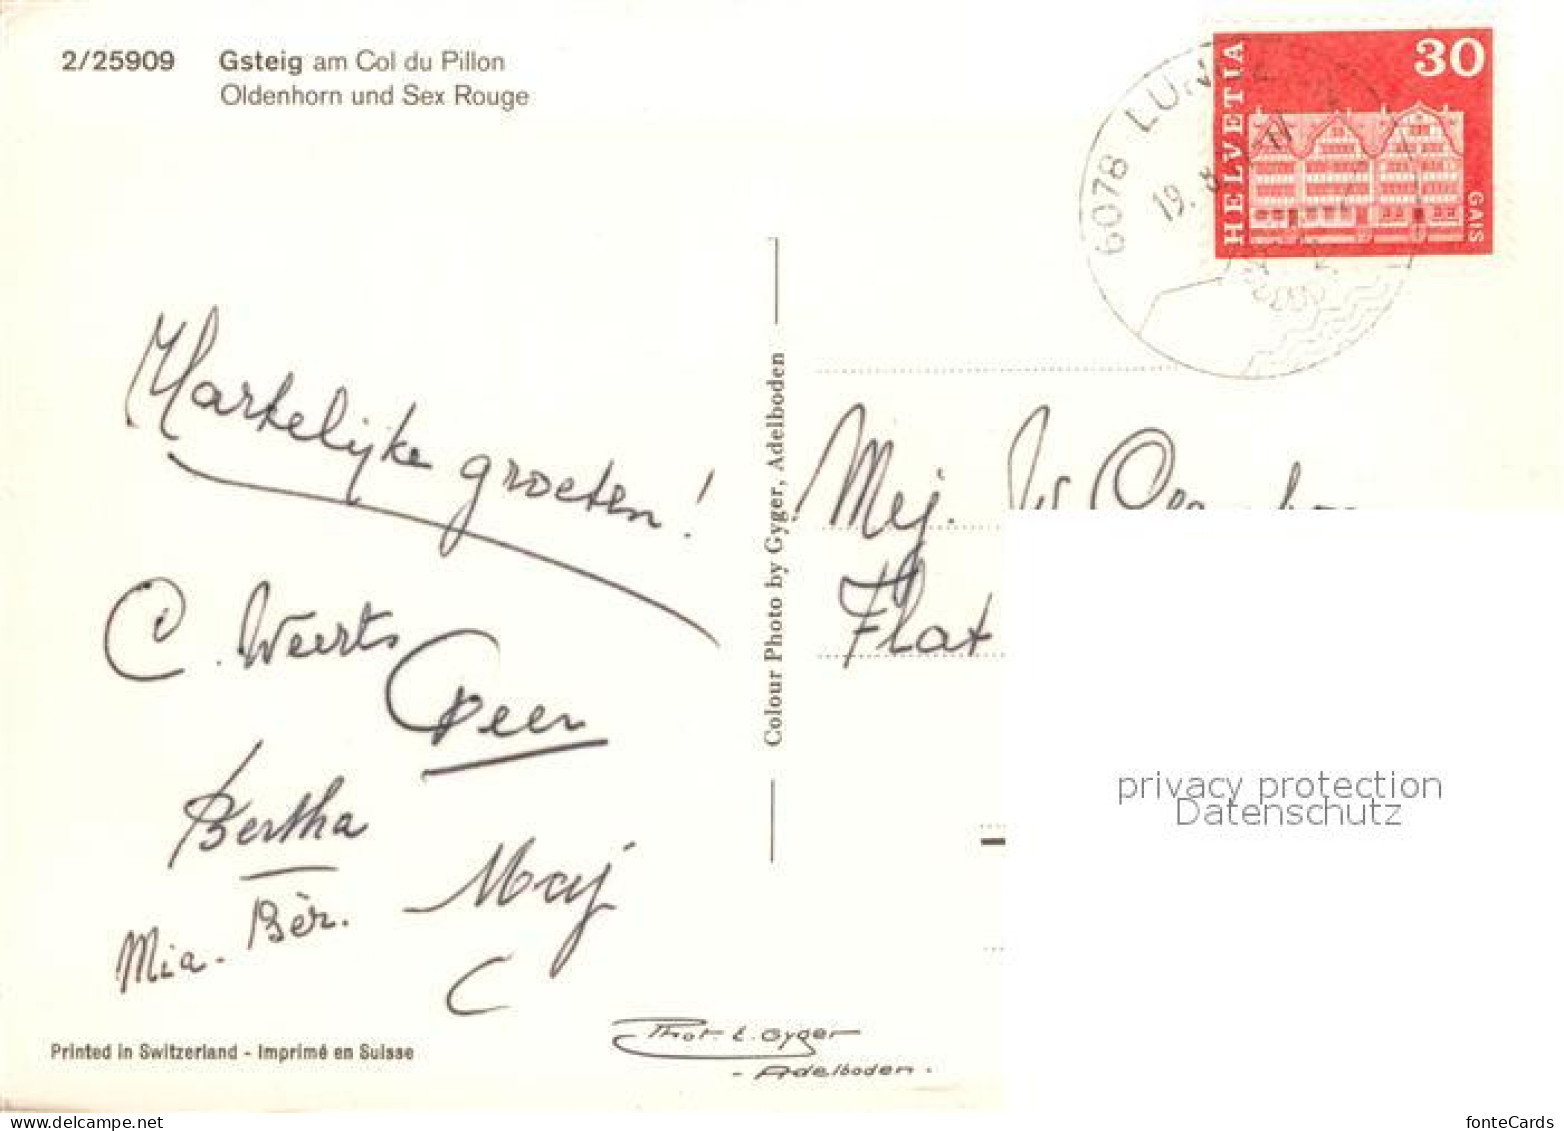 2/25909 Gsteig am Col du Pillon
Oldenhorn und Sex Rouge
HELVETIA
30
GAIS
6078 LUN
19. 8.
Hartelijke groeten!
C. Weerts
Bertha
Mia. Bèr.
C
Printed in Switzerland - Imprimé en Suisse
Phot. E. Gyger
- Adelboden.
Colour Photo by Gyger, Adelboden
Mej.
Flat
privacy protection
Datenschutz
www.delcampe.net
fonteCards